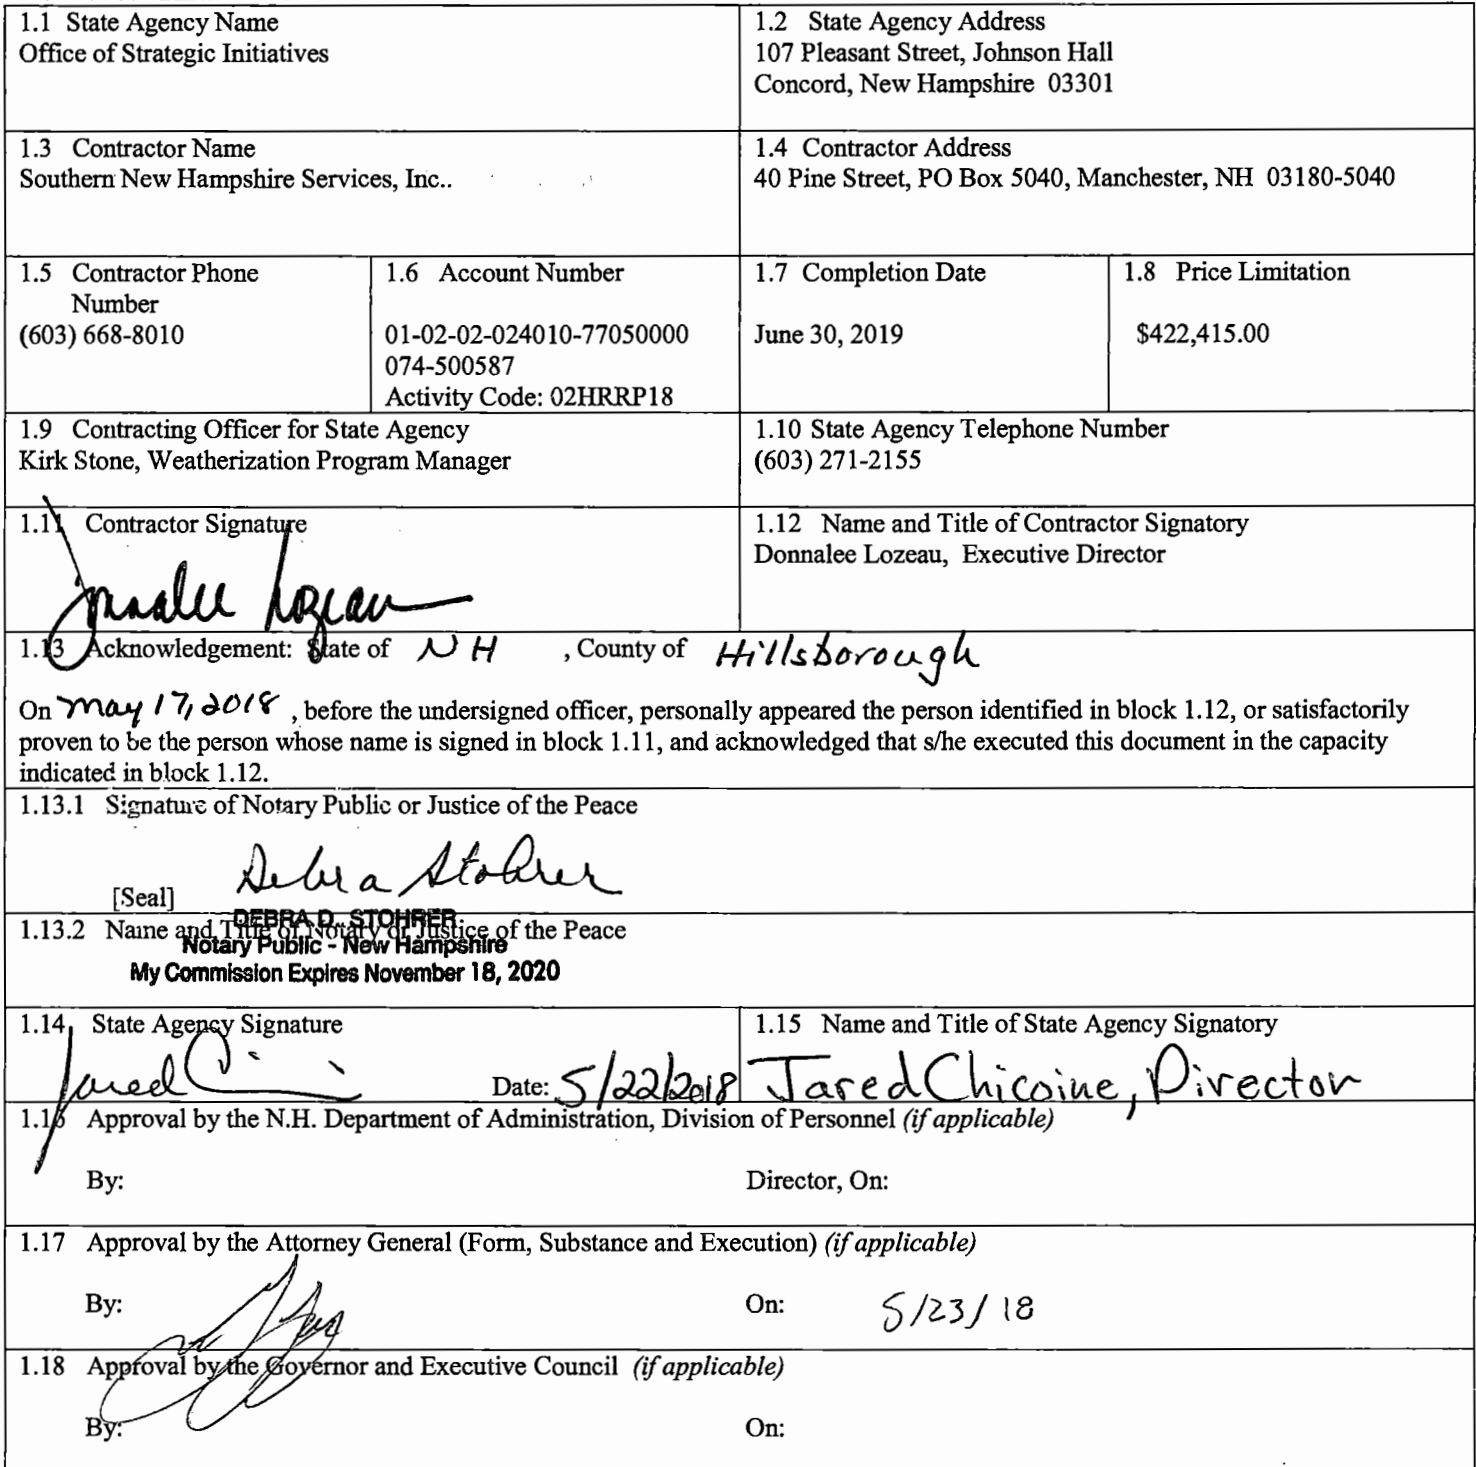 1.1 State Agency Name
Office of Strategic Initiatives
1.2 State Agency Address
107 Pleasant Street, Johnson Hall
Concord, New Hampshire 03301
1.3 Contractor Name
Southern New Hampshire Services, Inc..
1.4 Contractor Address
40 Pine Street, PO Box 5040, Manchester, NH 03180-5040
1.5 Contractor Phone
Number
(603) 668-8010
1.6 Account Number
01-02-02-024010-77050000
074-500587
Activity Code: 02HRRP18
1.7 Completion Date
June 30, 2019
1.8 Price Limitation
$422,415.00
1.9 Contracting Officer for State Agency
Kirk Stone, Weatherization Program Manager
1.10 State Agency Telephone Number
(603) 271-2155
1.11 Contractor Signature
Donnalee Lozeau
1.12 Name and Title of Contractor Signatory
Donnalee Lozeau, Executive Director
1.13 Acknowledgement: State of NH , County of Hillsborough
On May 17, 2018 , before the undersigned officer, personally appeared the person identified in block 1.12, or satisfactorily
proven to be the person whose name is signed in block 1.11, and acknowledged that s/he executed this document in the capacity
indicated in block 1.12.
1.13.1 Signature of Notary Public or Justice of the Peace
Debra Stohrer
[Seal]
DEBRA D. STOHRER
1.13.2 Name and Title of Notary or Justice of the Peace
Notary Public - New Hampshire
My Commission Expires November 18, 2020
1.14 State Agency Signature
Jared Date: 5/22/2018
1.15 Name and Title of State Agency Signatory
Jared Chicoine, Director
1.16 Approval by the N.H. Department of Administration, Division of Personnel (if applicable)
By: Director, On:
1.17 Approval by the Attorney General (Form, Substance and Execution) (if applicable)
By: On: 5/23/18
1.18 Approval by the Governor and Executive Council (if applicable)
By: On: